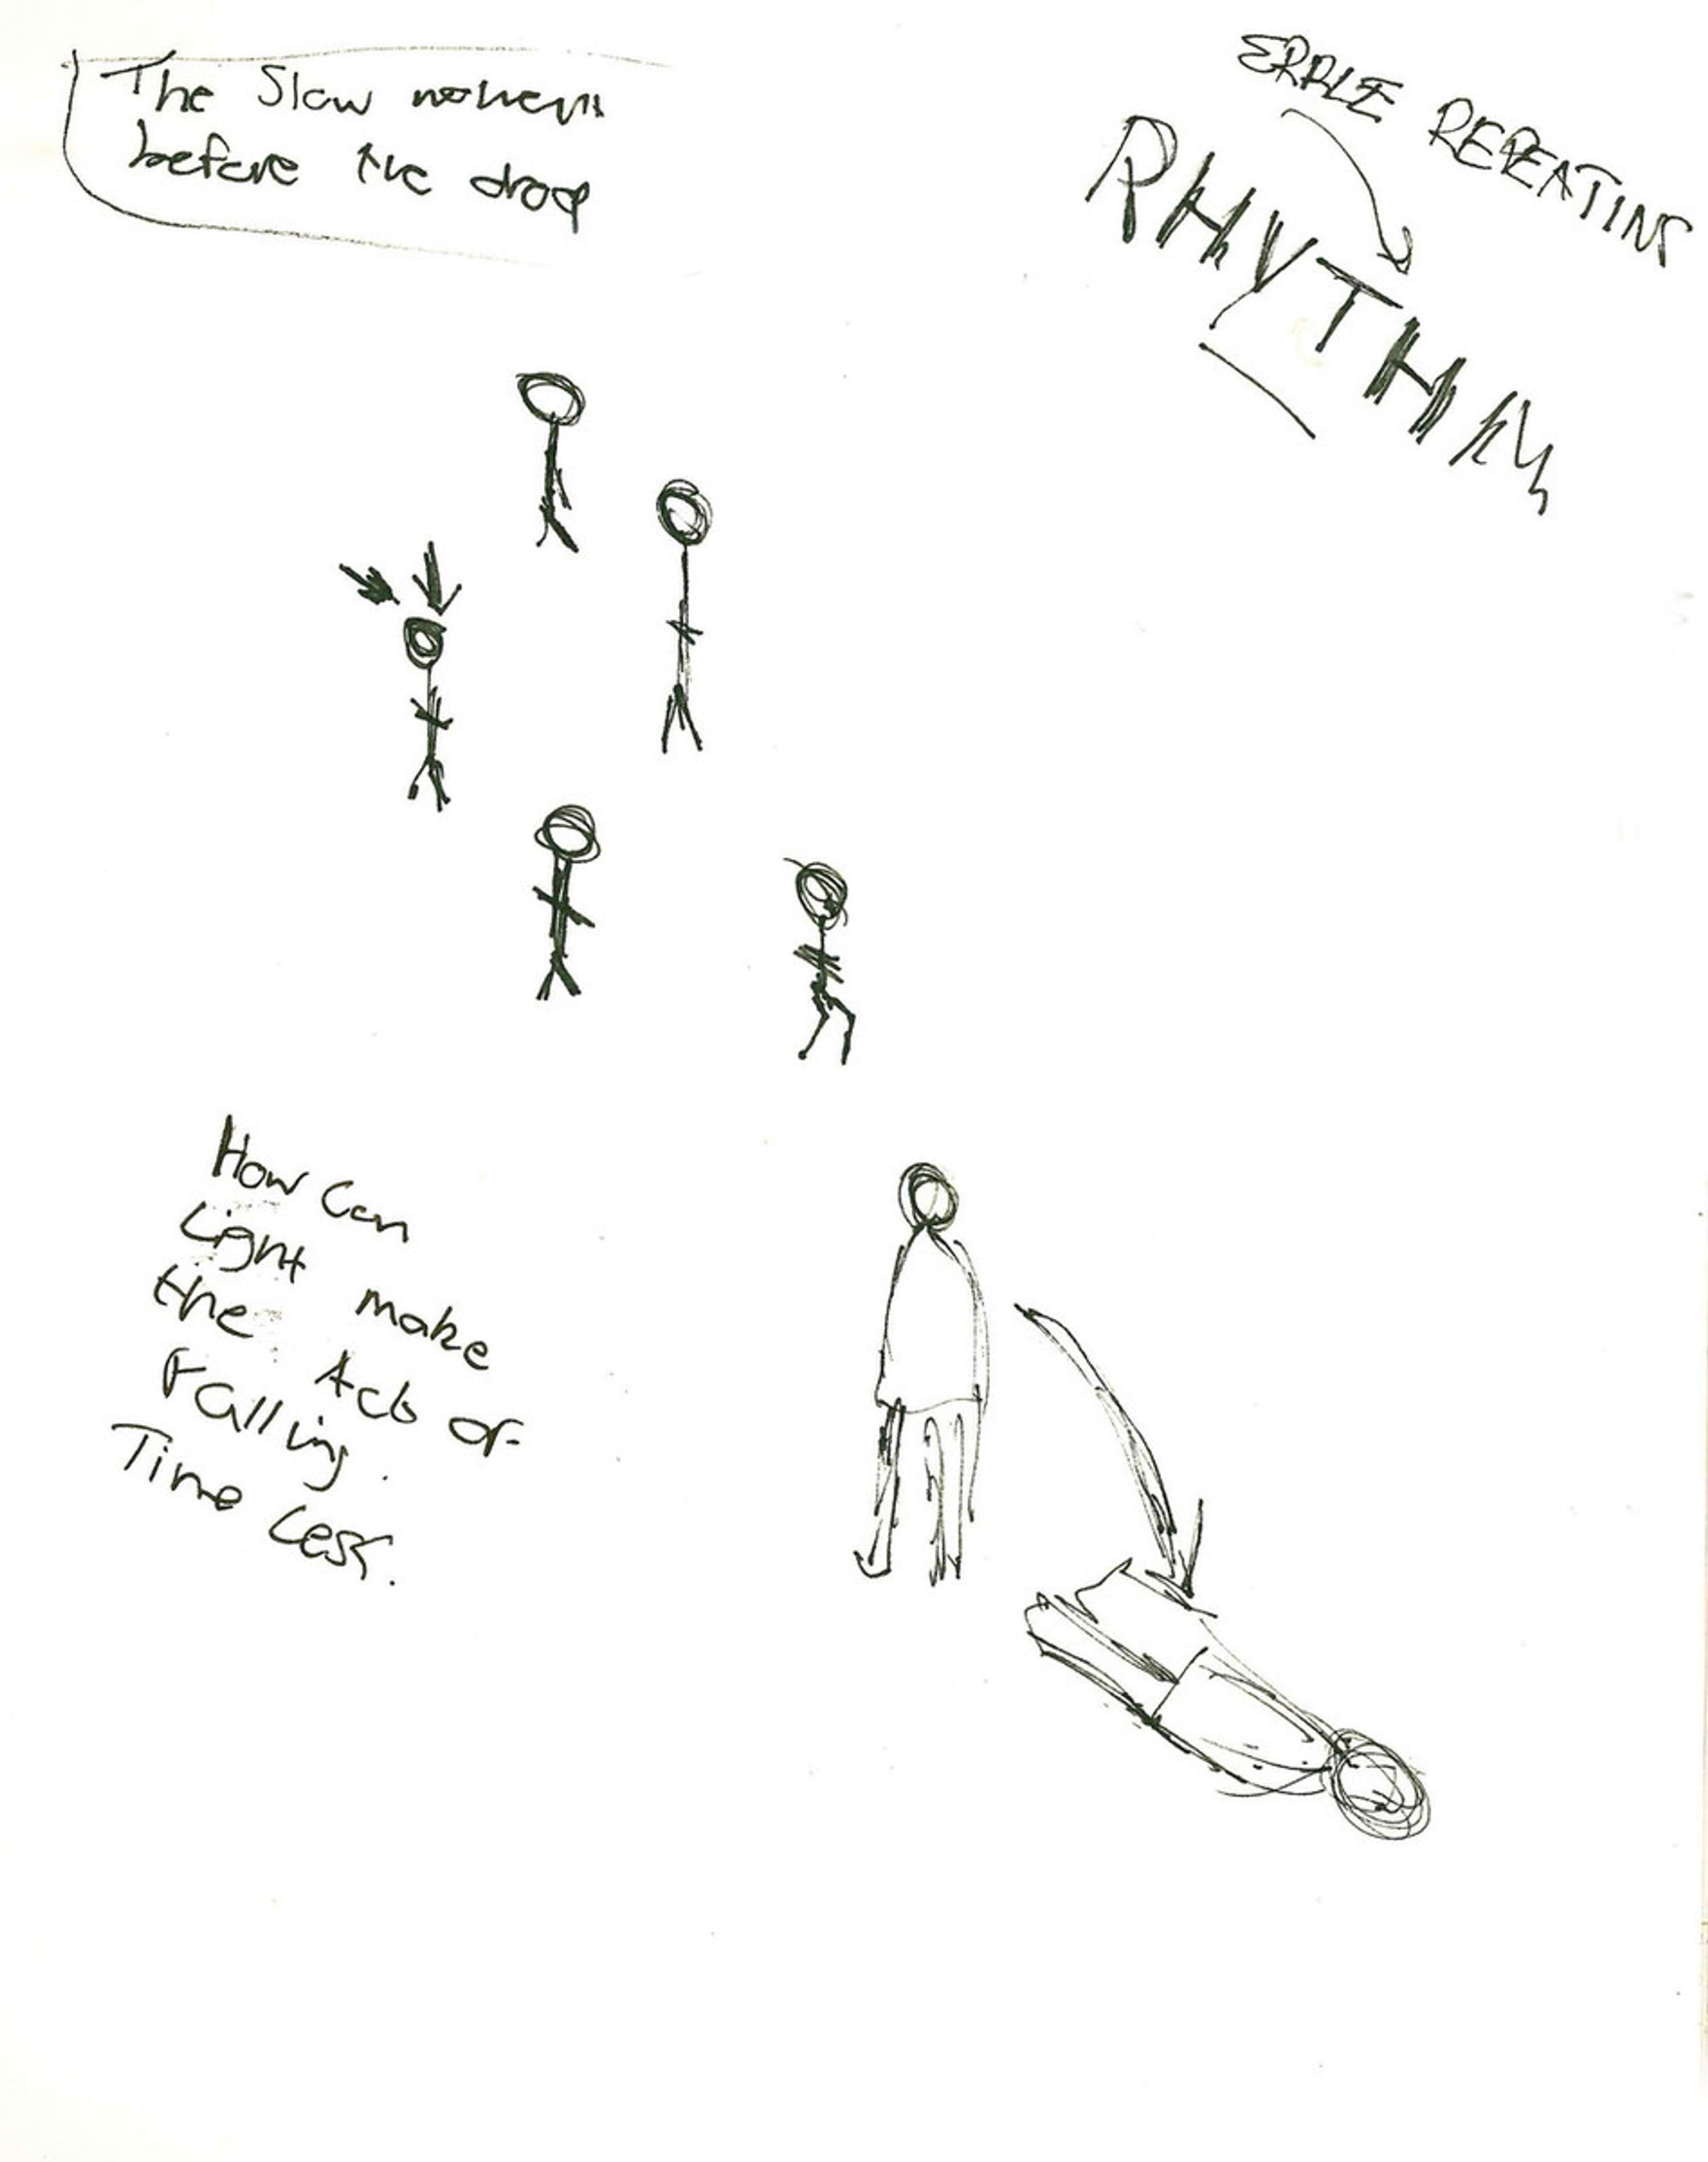 The Slow moment
before the drop
ERRLE REPEATING
RHYTHM
How Can
Light make
the Acts of
Falling.
Time Less.